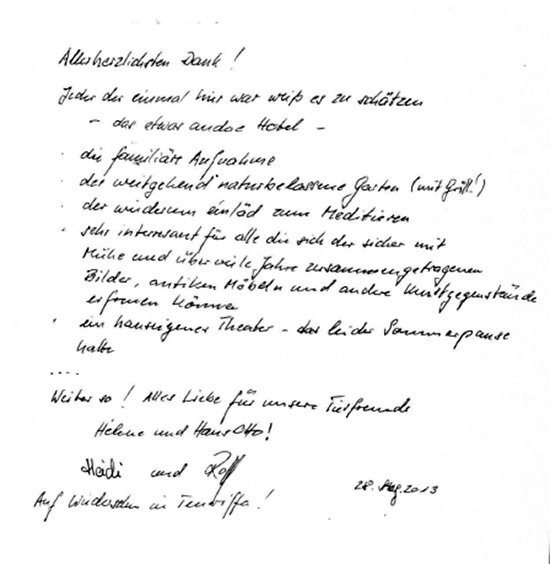 Allerherzlichsten Dank!
Jeder der einmal hier war weiß es zu schätzen
- das etwas andere Hotel -
· die familiäre Aufnahme
· der weitgehend naturbelassene Garten (mit Grill!)
· der wiederum einläd zum Meditieren
· sehr interessant für alle die sich der sicher mit
Mühe und über viele Jahre zusammengetragenen
Bilder, antiken Möbeln und andere Kunstgegenstände
erfreuen können
· ein hauseigenes Theater - das leider Sommerpause
hatte
....
Weiter so! Alles Liebe für unsere Tierfreunde
Helene und Hans Otto!
Heidi und Rolf
Auf Wiedersehen in Teneriffa!
28. Aug. 2013